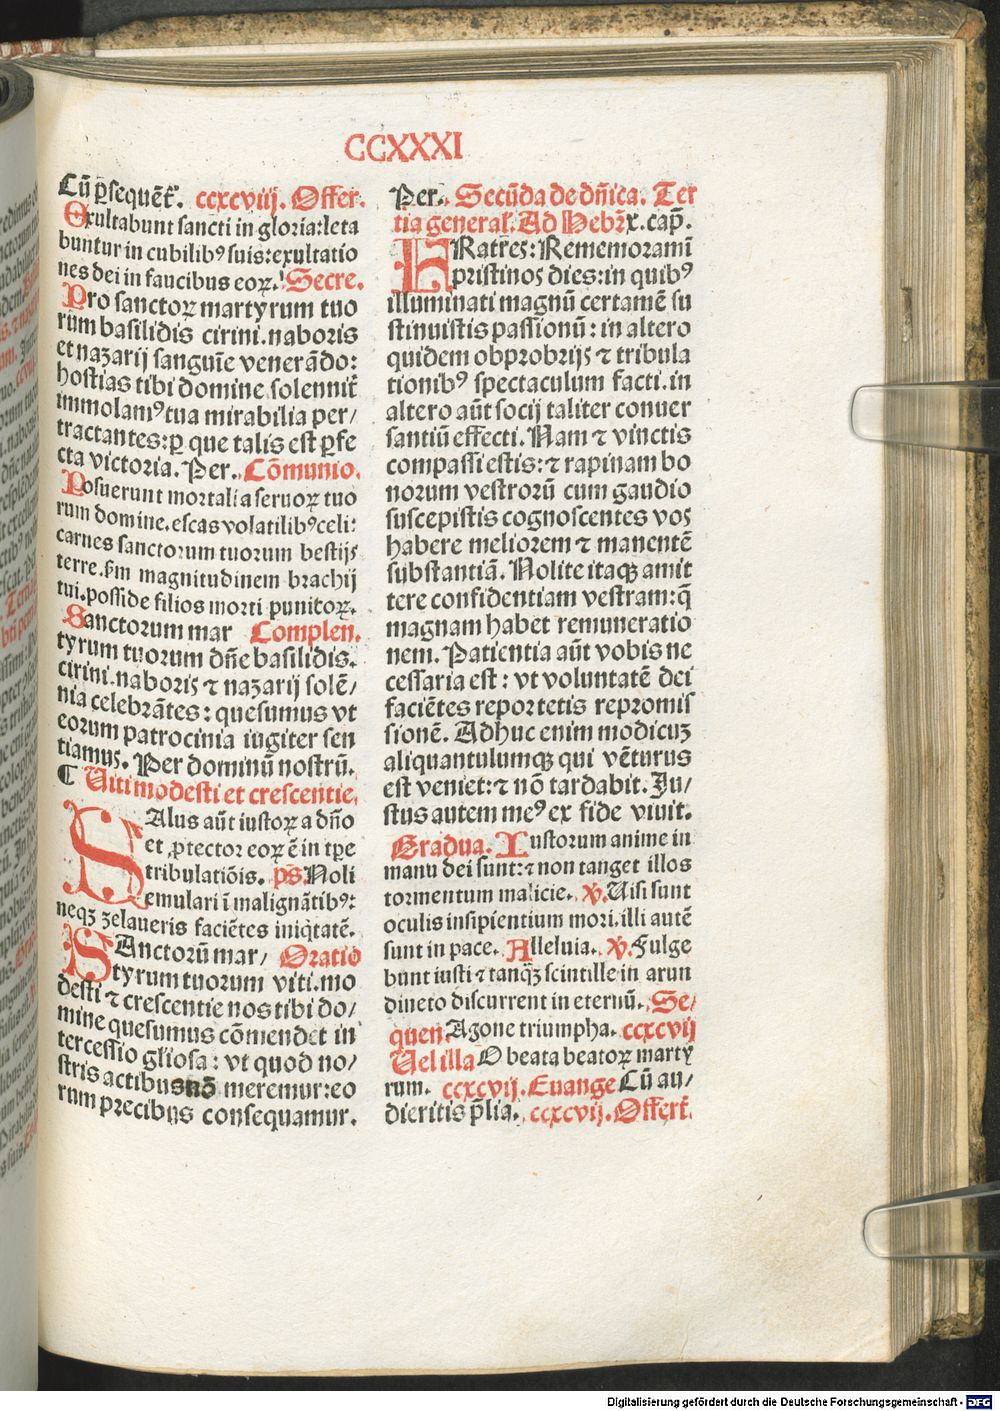 CCXXXI
Cū ꝑsequēt᷒. ccxcviij. Offer.
Exultabunt sancti in gloria: leta
buntur in cubilibꝰ suis: exultatio
nes dei in faucibus eoꝝ. Secre.
Pro sanctoꝝ martyrum tuo
rum basilidis cirini. naboris
et nazarij sanguīe venerādo:
hostias tibi domine solennit᷒
immolamꝰ tua mirabilia per/
tractantes: ꝑ que talis est ꝑfe
cta victoria. Per. Cōmunio.
Posuerunt mortalia seruoꝝ tuo
rum domine. escas volatilibꝰ celi:
carnes sanctorum tuorum bestijs
terre. ẜm magnitudinem brachij
tui. posside filios morti punitoꝝ.
Sanctorum mar Complen.
tyrum tuorum dn̄e basilidis.
cirini. naboris ⁊ nazarij solē/
nia celebrātes: quesumus vt
eorum patrocinia iugiter sen
tiamus. Per dominū nostrū.
¶ Uiti modesti et crescentie.
SAlus aūt iustoꝝ a dn̄o
et ꝓtector eoꝝ ē in tꝑe
tribulatiōis. ps̄. Noli
emulari ī malignātibꝰ:
neqꝫ zelaueris faciētes iniq̇tatē.
SAnctorū mar/ Oratio
tyrum tuorum viti. mo
desti ⁊ crescentie nos tibi do/
mine quesumus cōmendet in
tercessio gliosa: vt quod no/
stris actibus nō meremur: eo
rum precibus consequamur.
Per. Secūda de dn̄ica. Ter
tia general᷒. Ad Hebr̄ x. cap̄.
FRatres: Rememoramī
pristinos dies: in quibꝰ
illuminati magnū certamē su
stinuistis passionū: in altero
quidem obprobrijs ⁊ tribula
tionibꝰ spectaculum facti. in
altero aūt socij taliter conuer
santiū effecti. Nam ⁊ vinctis
compassi estis: ⁊ rapinam bo
norum vestrorū cum gaudio
suscepistis cognoscentes vos
habere meliorem ⁊ manentē
substantiā. Nolite itaqꝫ amit
tere confidentiam vestram: q̄
magnam habet remuneratio
nem. Patientia aūt vobis ne
cessaria est: vt voluntatē dei
faciētes reportetis repromis
sionē. Adhuc enim modicuꝫ
aliquantulumqꝫ qui vēturus
est veniet: ⁊ nō tardabit. Iu/
stus autem meꝰ ex fide viuit.
Gradua. Iustorum anime in
manu dei sunt: ⁊ non tanget illos
tormentum malicie. ℣. Uisi sunt
oculis insipientium mori. illi autē
sunt in pace. Alleluia. ℣. Fulge
bunt iusti ⁊ tanq̄ꝫ scintille in arun
dineto discurrent in eternū. Se/
quen Agone triumpha. ccxcvij
Uel illa O beata beatoꝝ marty
rum. ccxcvij. Euange Cū au/
dieritis p̄lia. ccxcvij. Offert᷒.
Digitalisierung gefördert durch die Deutsche Forschungsgemeinschaft - DFG